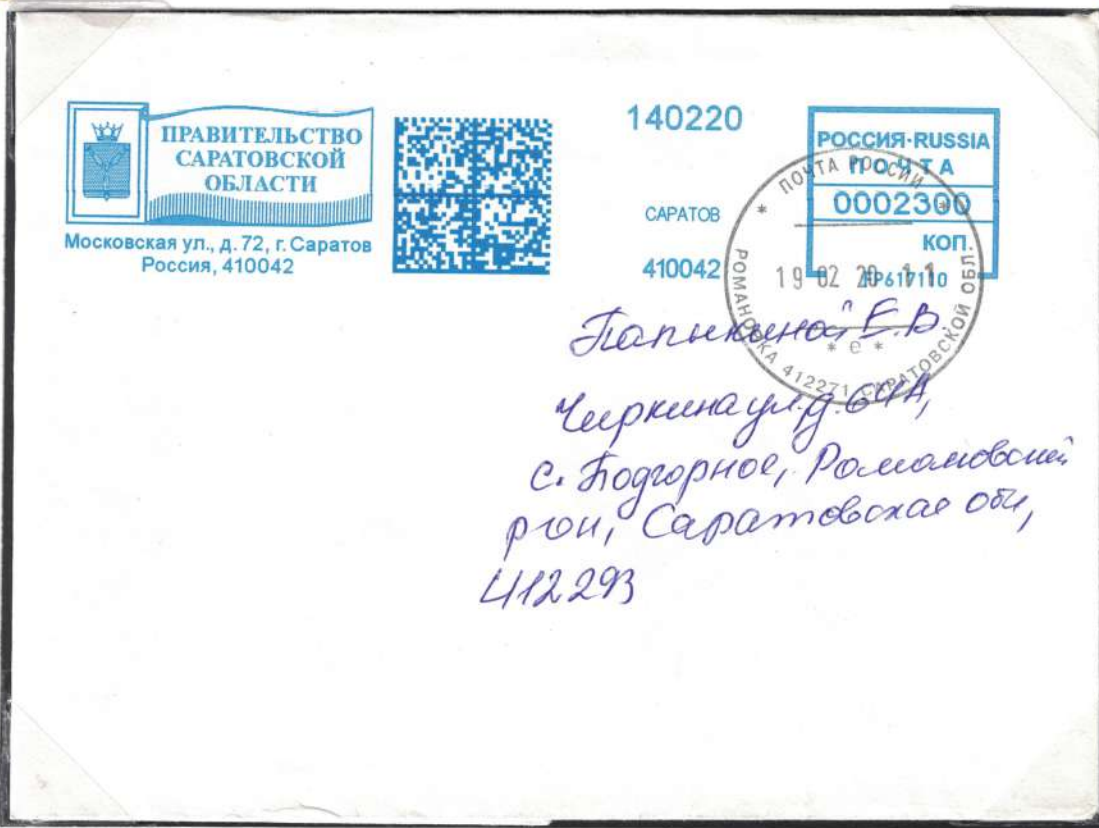 ПРАВИТЕЛЬСТВО
САРАТОВСКОЙ
ОБЛАСТИ
Московская ул., д. 72, г. Саратов
Россия, 410042
140220
САРАТОВ
410042
РОССИЯ·RUSSIA
ПОЧТА
0002300
КОП.
FP617110
* ПОЧТА РОССИИ *
19 02 20 11
* е *
РОМАНОВКА 412271 САРАТОВСКОЙ ОБЛ
Папыкиной Е.В.
Чиркина ул. д. 64А,
с. Подгорное, Романовский
р-он, Саратовская обл,
412293